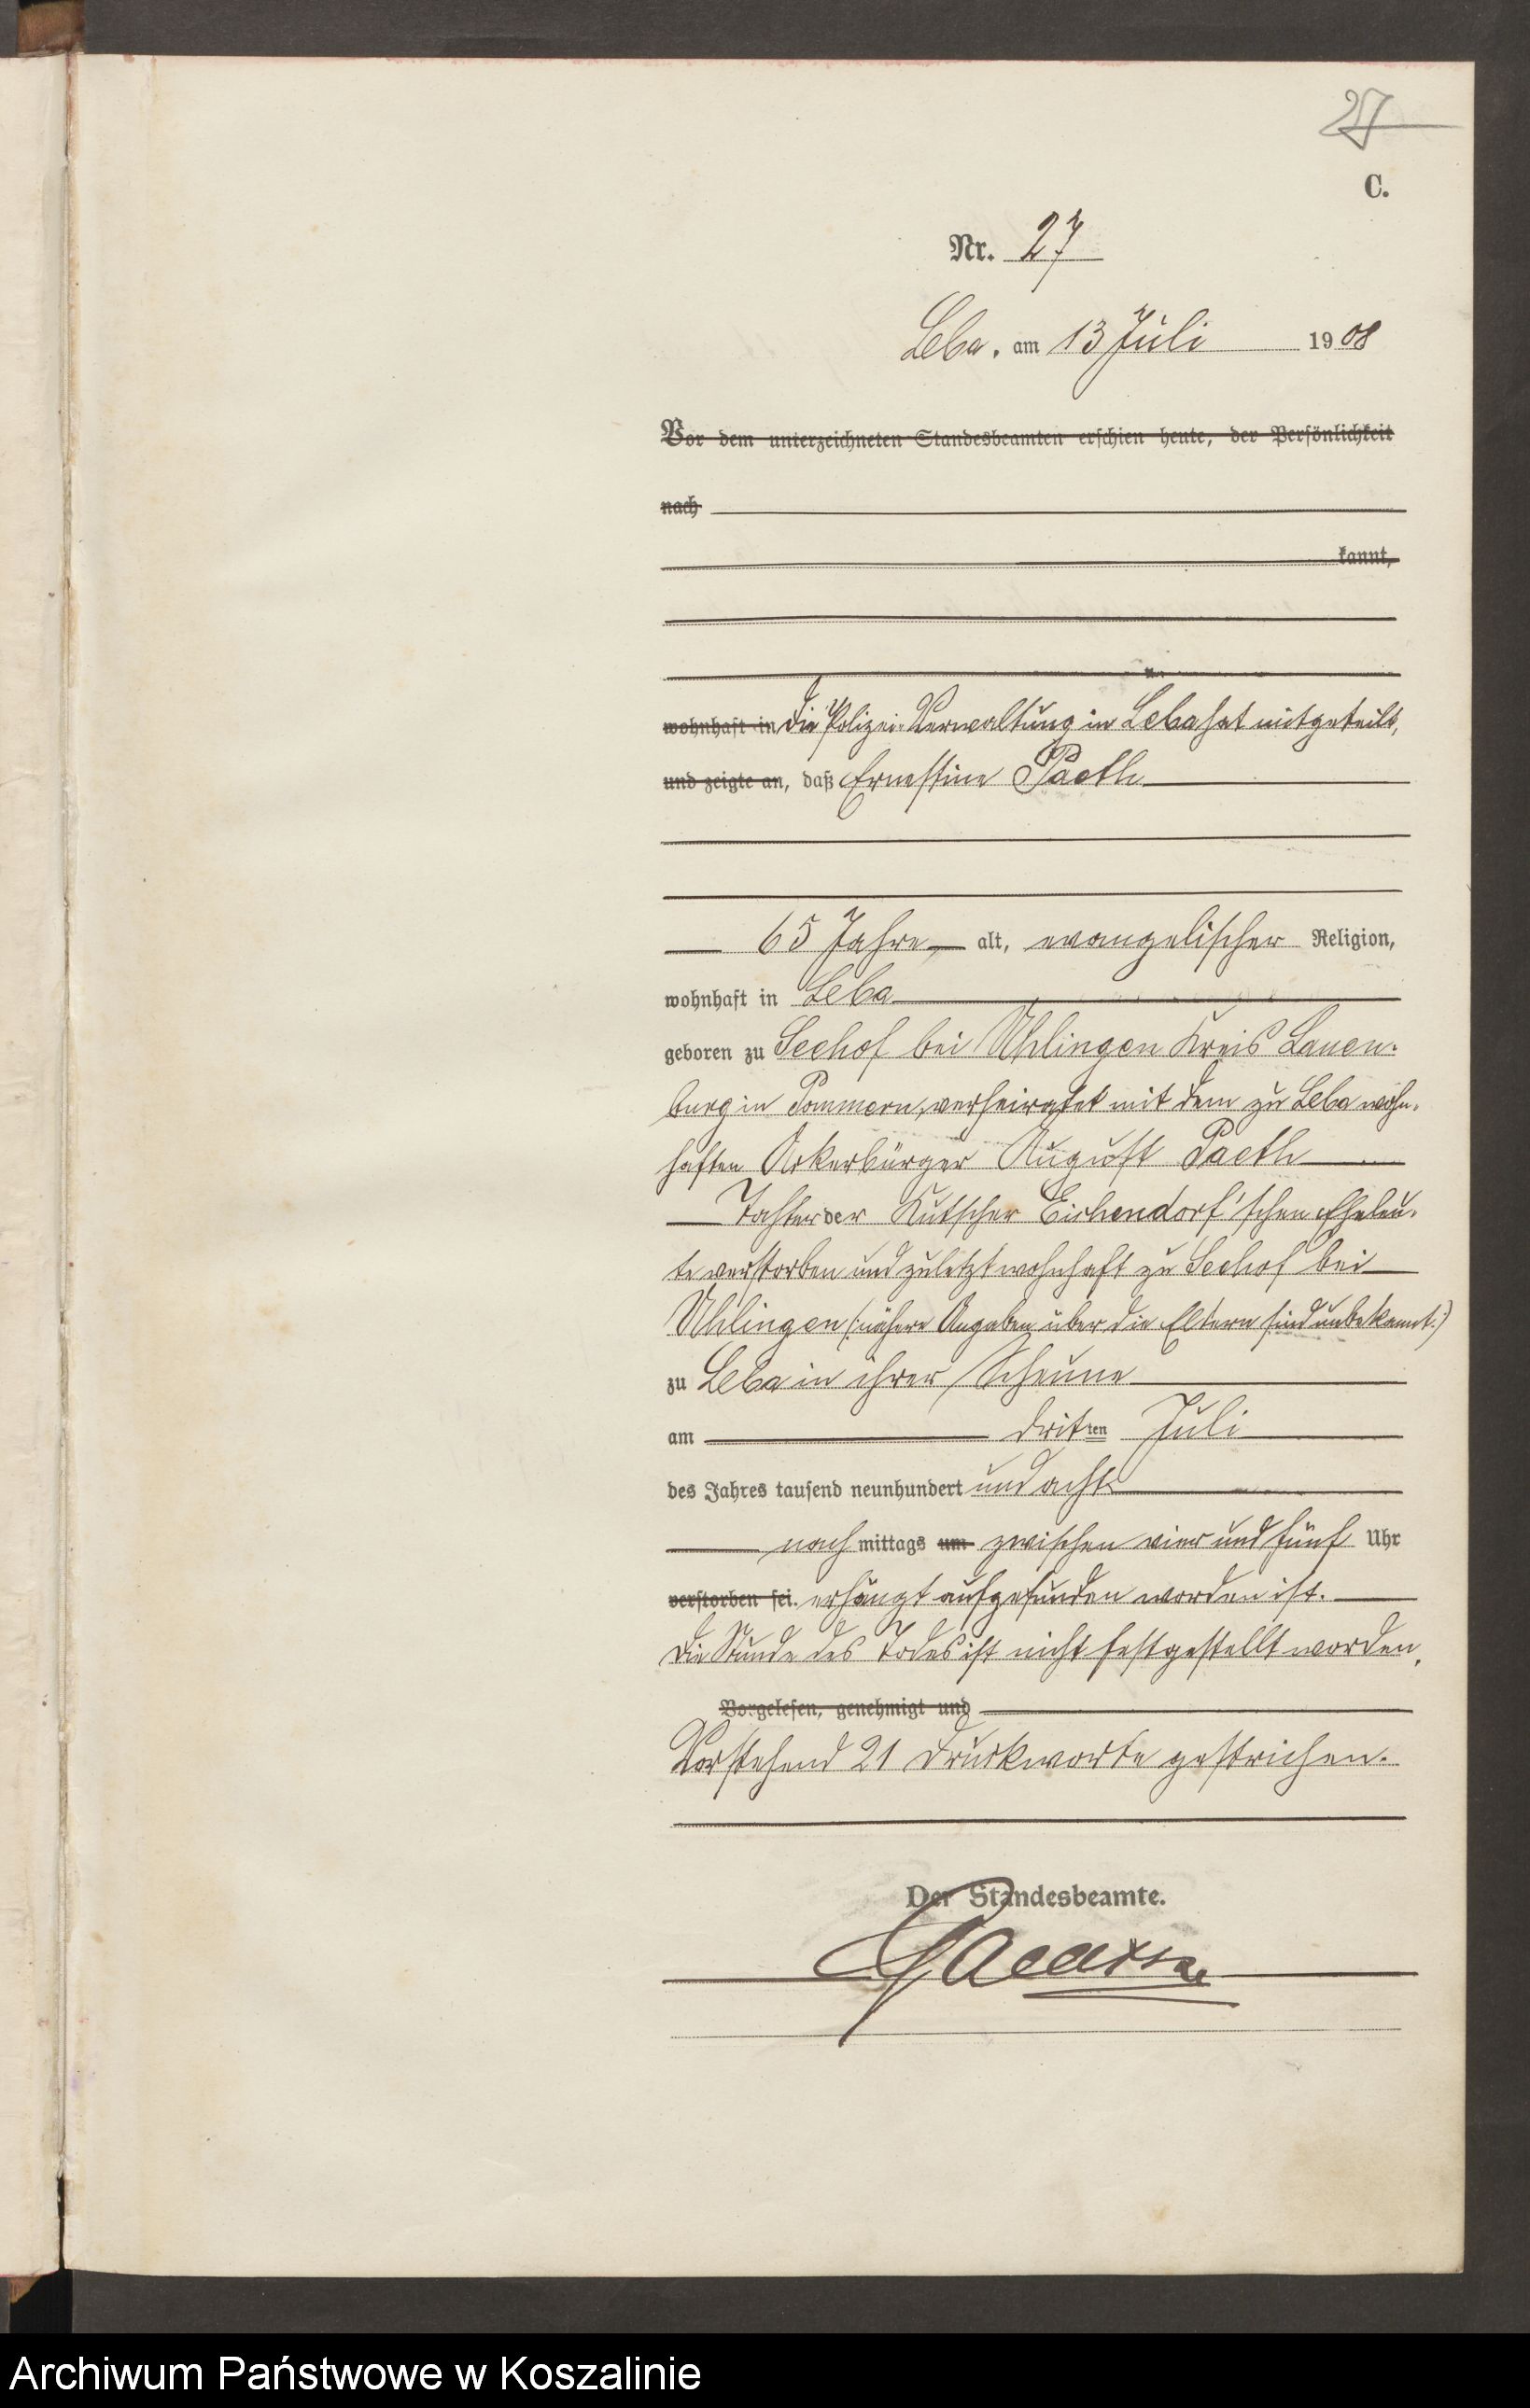 27
C.
Nr. 27
Leba, am 13 Juli 1908
Vor dem unterzeichneten Standesbeamten erschien heute, der Persönlichkeit
nach
kannt,
wohnhaft in die Polizei-Verwaltung in Leba hat mitgeteilt,
und zeigte an, daß Ernestine Paeth
65 Jahre alt, evangelischer Religion,
wohnhaft in Leba
geboren zu Seehof bei Uhlingen Kreis Lauen-
burg in Pommern, verheiratet mit dem zu Leba wohn-
haften Ackerbürger August Paeth
Tochter der Kutscher Eichendorf'schen Eheleu-
te verstorben und zuletzt wohnhaft zu Seehof bei
Uhlingen (:nähere Angaben über die Eltern sind unbekannt.:)
zu Leba in ihrer Scheune
am dritten Juli
des Jahres tausend neunhundert und acht
nach mittags um zwischen vier und fünf Uhr
verstorben sei. erhängt aufgefunden worden ist.
Die Stunde des Todes ist nicht festgestellt worden.
Vorgelesen, genehmigt und
Vorstehend 21 Druckworte gestrichen.
Der Standesbeamte.
Archiwum Państwowe w Koszalinie